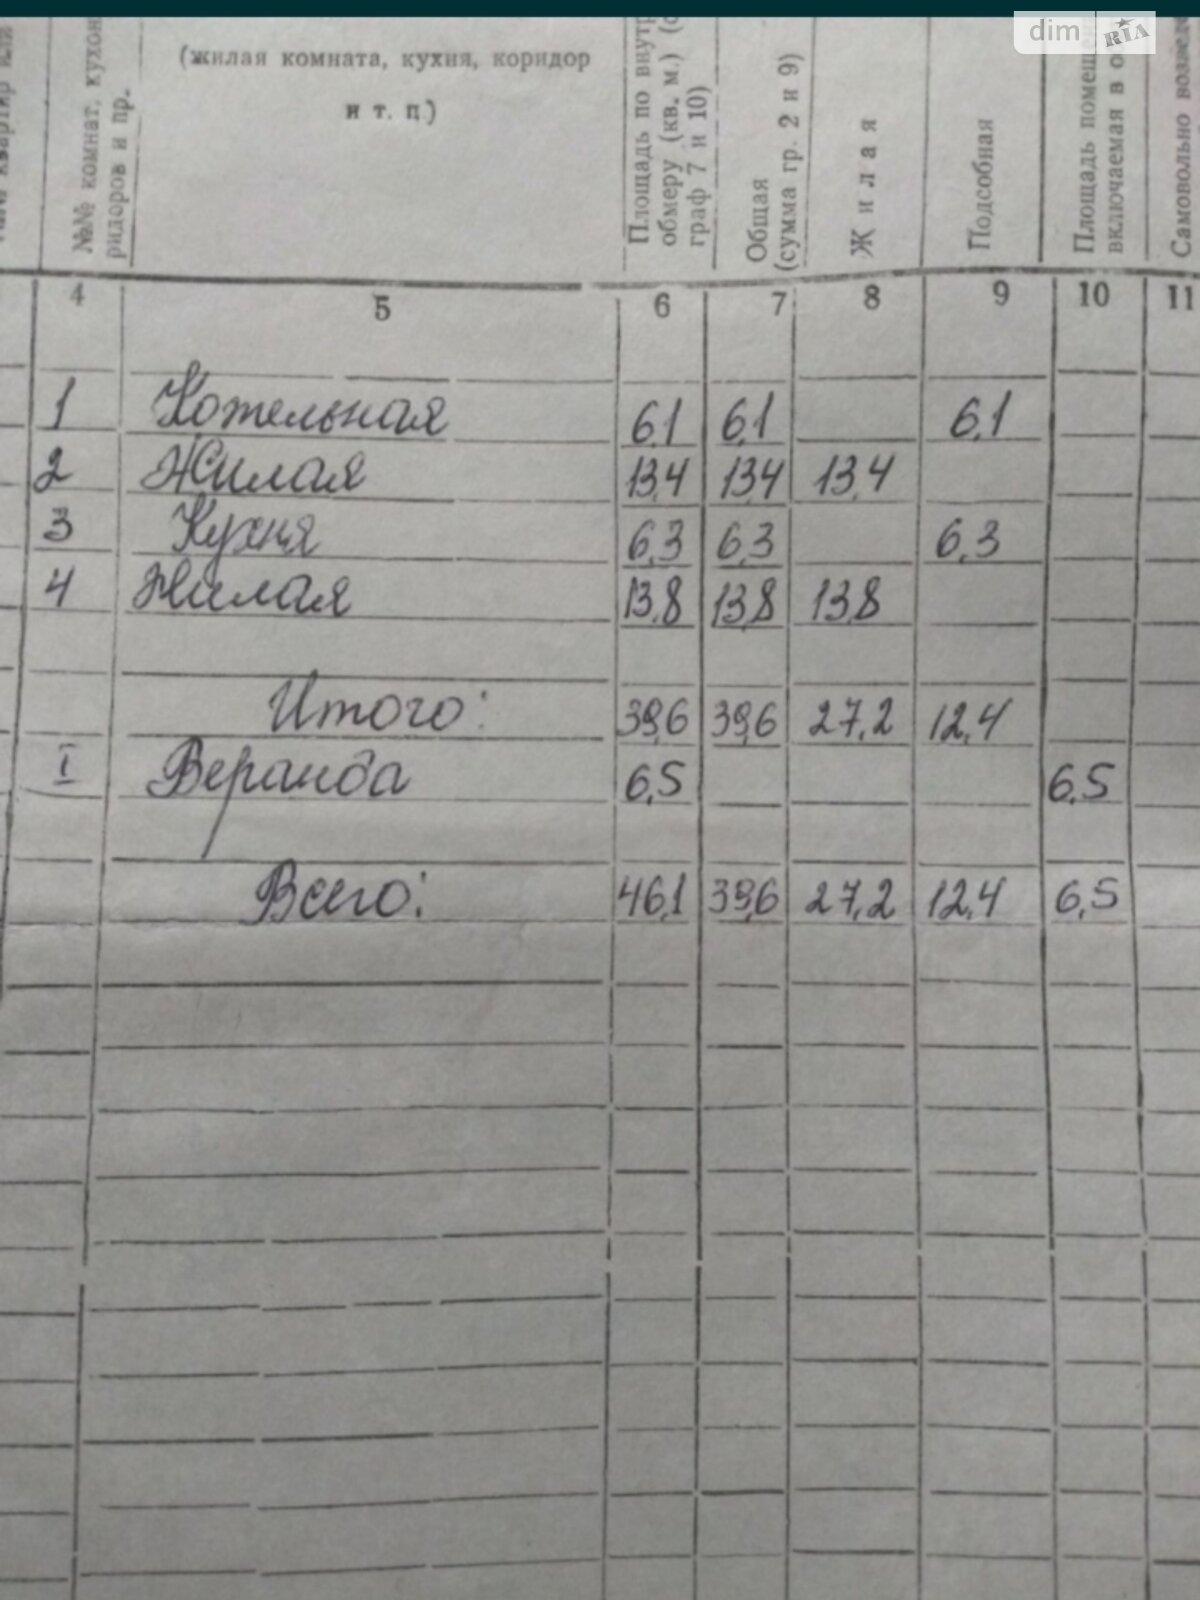 dim RIA
(жилая комната, кухня, коридор
и т. п.)
№№ комнат, кухон
ридоров и пр.
Площадь по внутр
обмеру (кв. м.) (с
граф 7 и 10)
Общая
(сумма гр. 2 и 9)
Жилая
Подсобная
Площадь помеще
включаемая в о
Самовольно возвед
4 5 6 7 8 9 10 11
1 Котельная 6,1 6,1 6,1
2 Жилая 13,4 13,4 13,4
3 Кухня 6,3 6,3 6,3
4 Жилая 13,8 13,8 13,8
Итого: 39,6 39,6 27,2 12,4
I Веранда 6,5 6,5
Всего: 46,1 39,6 27,2 12,4 6,5